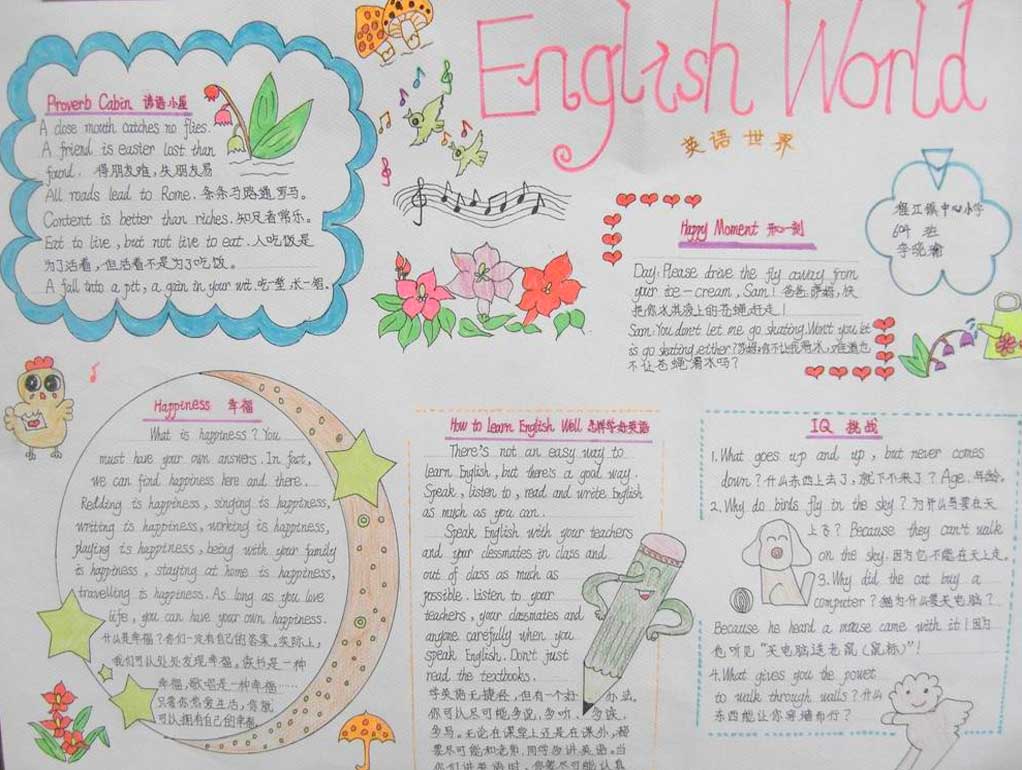 English World
英语世界
Proverb Cabin 谚语小屋
A close mouth catches no flies.
A friend is easier lost than
found. 得朋友难,失朋友易
All roads lead to Rome. 条条马路通罗马。
Content is better than riches. 知足者常乐。
Eat to live, but not live to eat. 人吃饭是
为了活着,但活着不是为了吃饭。
A fall into a pit, a gain in your wit. 吃一堑 长一智。
Happy Moment 开心一刻
Day: Please drive the fly away from
your ice-cream, Sam! 爸爸:萨姆,快
把你冰淇淋上的苍蝇赶走!
Sam: You don't let me go skating. Won't you let
is go skating either? 你不让我滑冰,难道也
不让苍蝇滑冰吗?
程江镇中心小学
604 班
李晓瀹
Happiness 幸福
What is happiness? You
must have your own answers. In fact,
we can find happiness here and there.
Redding is happiness, singing is happiness,
writing is happiness, working is happiness,
playing is happiness, being with your family
is happiness, staying at home is happiness,
travelling is happiness. As long as you love
life, you can have your own happiness.
什么是幸福?你们一定有自己的答案。实际上,
我们可以处处发现幸福。读书是一种
幸福,歌唱是一种幸福……
只要你热爱生活,你就
可以拥有自己的幸福。
How to Learn English Well 怎样学好英语
There's not an easy way to
learn English, but there's a good way.
Speak, listen to, read and write English
as much as you can.
Speak English with your teachers
and your classmates in class and
out of class as much as
possible. Listen to your
teachers, your classmates and
anyone carefully when you
speak English. Don't just
read the textbooks.
学英语无捷径,但有一个好办法。
你可以尽可能多说,多听、多读,
多写。无论在课堂上还是在课外,都
要尽可能和老师,同学多讲英语。当
你们讲英语时,你要尽可能认真
IQ 挑战
1. What goes up and up, but never comes
down? 什么东西上去了,就下不来了? Age. 年龄。
2. Why do birds fly in the sky? 为什么鸟要在天
上飞? Because they can't walk
on the sky. 因为它不能在天上走。
3. Why did the cat buy a
computer? 猫为什么要买电脑?
Because he heard a mouse came with it! 因为
他听见“买电脑送老鼠(鼠标)”!
4. What gives you the power
to walk through walls? 什么
东西能让你穿墙而行?